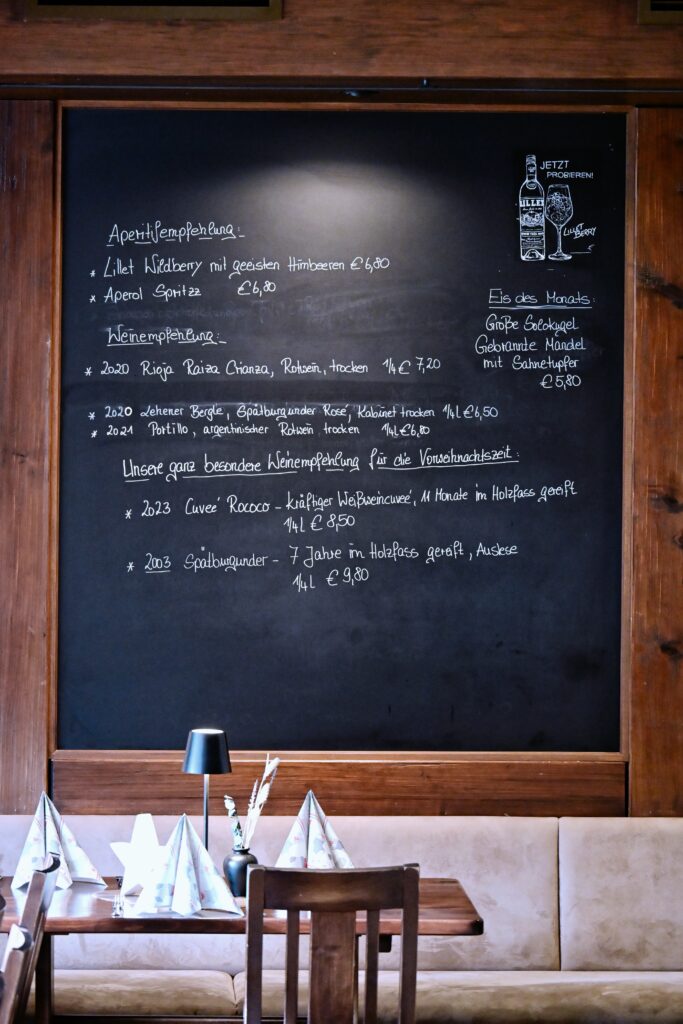 JETZT
PROBIEREN!
LILLET
LILLET
BERRY
Aperitifempfehlung:
* Lillet Wildberry mit geeisten Himbeeren €6,80
* Aperol Spritzz €6,80
Eis des Monats:
Große Solokugel
Gebrannte Mandel
mit Sahnetupfer
€5,80
Weinempfehlung:
* 2020 Rioja Raiza Crianza, Rotwein, trocken 1/4 € 7,20
* 2020 Lehener Bergle, Spätburgunder Rosé, Kabinet trocken 1/4 L €6,50
* 2021 Portillo, argentinischer Rotwein trocken 1/4L €6,80
Unsere ganz besondere Weinempfehlung für die Vorweihnachtszeit:
* 2023 Cuveé Rococo - kräftiger Weißweincuveé, 11 Monate im Holzfass gereift
1/4 L € 8,50
* 2003 Spätburgunder - 7 Jahre im Holzfass gereift, Auslese
1/4 L € 9,80